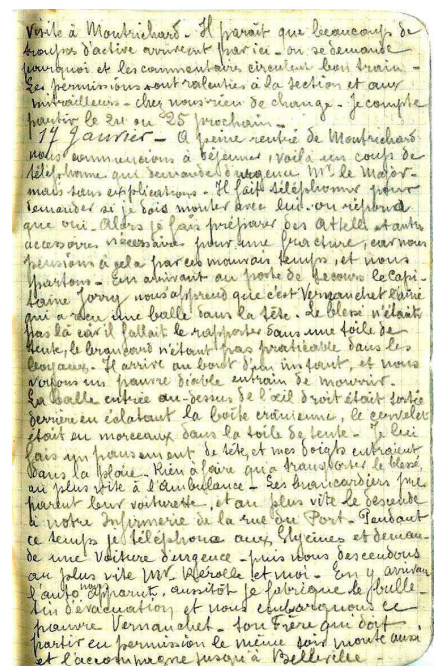 visite à Montrichard - Il paraît que beaucoup de
troupes d'active arrivent par ici - on se demande
pourquoi et les commentaires circulent bon train -
Les permissions sont ralenties à la section et aux
mitrailleurs - chez nous rien de change - Je compte
partir le 24 ou 25 prochain -
17 Janvier - A peine rentré de Montrichard
nous commencions à déjeuner, voilà un coup de
téléphone qui demande d'urgence Mr le Major
mais sans explications - Il fait téléphoner pour
demander si je dois monter avec lui - on répond
que oui - Alors je fais préparer des Attelles et autres
accessoires nécessaires pour une fracture, car nous
pensions à cela par ces mauvais temps, et nous
partons - En arrivant au poste de secours le Capi-
taine Jorry, nous apprend que c'est Vernanchet l'aîné
qui a reçu une balle dans la tête - Le blessé n'était
pas là car il fallait le rapporter dans une toile de
tente, le brancard n'étant pas praticable dans les
boyaux - Il arrive au bout d'un instant, et nous
voyons un pauvre diable entrain de mourir -
La balle entrée au-dessus de l'œil droit était sortie
derrière en éclatant la boîte crânienne, le cervelet
était en morceaux dans la toile de tente - Je lui
fais un pansement de tête, et mes doigts entraient
dans la plaie - Rien à faire qu'a transporter le blessé
au plus vite à l'ambulance - Les brancardiers pré
parent leur voiturette, et au plus vite le descende
à notre Infirmerie de la rue du Port - Pendant
ce temps je téléphone aux Glycines et deman-
de une voiture d'urgence - puis nous descendons
au plus vite Mr Kérolle et moi - En y arrivant
l'auto apparut, aussitôt je fabrique le bulle-
tin d'évacuation et nous embarquons ce
pauvre Vernanchet - son Frère qui doit
partir en permission le même soir monte aussi
et l'accompagne jusqu'à Belleville -